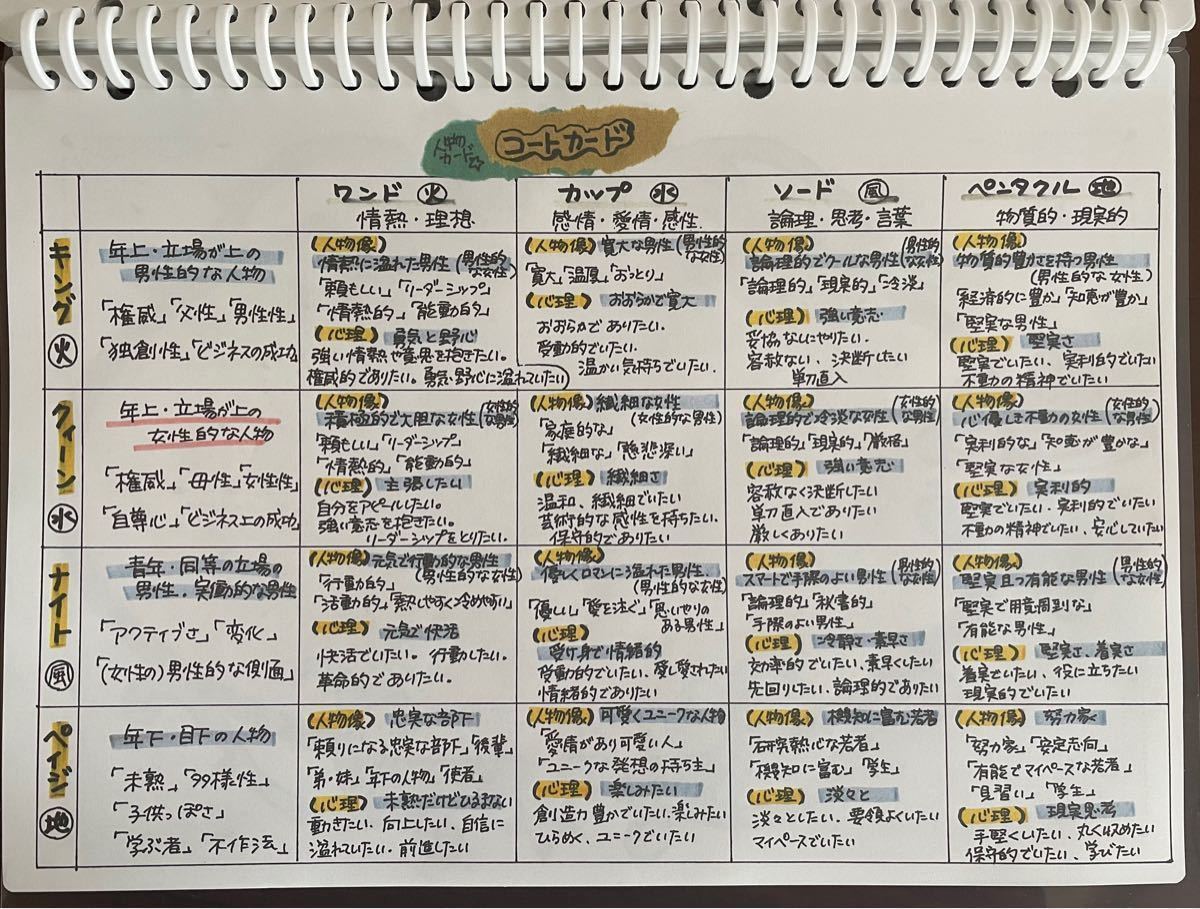 人物カード☆
コートカード
ワンド 火
情熱・理想
カップ 水
感情・愛情・感性
ソード 風
論理・思考・言葉
ペンタクル 地
物質的・現実的
キング 火
年上・立場が上の
男性的な人物
「権威」「父性」「男性性」
「独創性」「ビジネスの成功」
(人物像)
情熱に溢れた男性(男性的な女性)
「頼もしい」「リーダーシップ」
「情熱的」「能動的」
(心理) 勇気と野心
強い情熱や意思を抱きたい。
権威的でありたい。勇気・野心に溢れていたい
(人物像) 寛大な男性(男性的な女性)
「寛大」「温厚」「おっとり」
(心理) おおらかで寛大
おおらかでありたい.
受動的でいたい.
温かい気持ちでいたい.
(人物像)
論理的でクールな男性(男性的な女性)
「論理的」「現実的」「冷淡」
(心理) 強い意志
妥協なしにやりたい.
容赦ない、決断したい
単刀直入
(人物像)
物質的豊かさを持つ男性
(男性的な女性)
「経済的に豊か」「知恵が豊か」
「堅実な男性」
(心理) 堅実さ
堅実でいたい、実利的でいたい
不動の精神でいたい
クィーン 水
年上・立場が上の
女性的な人物
「権威」「母性」「女性性」
「自尊心」「ビジネス上の成功」
(人物像)
積極的で大胆な女性(女性的な男性)
「頼もしい」「リーダーシップ」
「情熱的」「能動的」
(心理) 主張したい
自分をアピールしたい。
強い意志を抱きたい.
リーダーシップをとりたい。
(人物像) 繊細な女性
(女性的な男性)
「家庭的な」
「繊細な」「慈悲深い」
(心理) 繊細さ
温和、繊細でいたい
芸術的な感性を持ちたい.
保守的でありたい
(人物像)
論理的で冷淡な女性(女性的な男性)
「論理的」「現実的」「厳格」
(心理) 強い意志
容赦なく決断したい
単刀直入でありたい
厳しくありたい
(人物像)
心優しき不動の女性(女性的な男性)
「実利的な」「知恵が豊かな」
「堅実な女性」
(心理) 実利的
堅実でいたい・実利的でいたい
不動の精神でいたい、安心していたい
ナイト 風
青年・同等の立場の
男性.実働的な男性
「アクティブさ」「変化」
「(女性の)男性的な側面」
(人物像) 元気で行動的な男性
(男性的な女性)
「行動的」
「活動的」「熱しやすく冷めやすい」
(心理) 元気で快活
快活でいたい。行動したい。
革命的でありたい。
(人物像)
優しくロマンに溢れた男性.
(男性的な女性)
「優しい」「愛を注ぐ」「思いやりのある男性」
(心理)
受け身で情緒的
受動的でいたい、愛し愛されたい
情緒的でありたい
(人物像)
スマートで手際のよい男性(男性的な女性)
「論理的」「秘書的」
「手際のよい男性」
(心理) 冷静さ・素早さ
効率的でいたい、素早くしたい
先回りしたい、論理的でありたい
(人物像)
堅実且つ有能な男性(男性的な女性)
「堅実で用意周到な」
「有能な男性」
(心理) 堅実さ、着実さ
着実でいたい、役に立ちたい
現実的でいたい
ペイジ 地
年下・目下の人物
「未熟」「多様性」
「子供っぽさ」
「学ぶ者」「不作法」
(人物像) 忠実な部下
「頼りになる忠実な部下」「後輩」
「弟・妹」「年下の人物」「使者」
(心理) 未熟だけどひるまない
動きたい、向上したい、自信に
溢れていたい、前進したい
(人物像) 可愛くユニークな人物
「愛情があり可愛い人」
「ユニークな発想の持ち主」
(心理) 楽しみたい
創造力豊かでいたい.楽しみたい
ひらめく、ユニークでいたい
(人物像) 機知に富む若者
「研究熱心な若者」
「機知に富む」「学生」
(心理) 淡々と
淡々としたい、要領よくいたい
マイペースでいたい
(人物像) 努力家
「努力家」「安定志向」
「有能でマイペースな若者」
「見習い」「学生」
(心理) 現実思考
手堅くいたい、丸く収めたい
保守的でいたい、学びたい